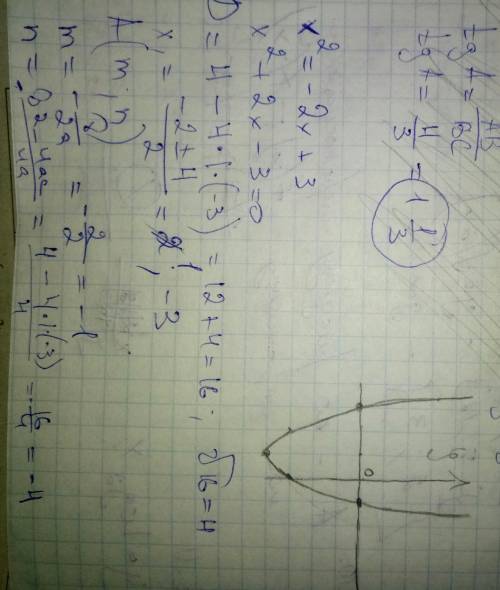 tg A = AB/BC
tg A = 4/3 = 1 1/3
x² = -2x + 3
x² + 2x - 3 = 0
D = 4 - 4·1·(-3) = 12 + 4 = 16; √16 = 4
x = (-2 ± 4)/2 = 1; -3
A(m; n)
m = -в/2a = -2/2 = -1
n = -в² - 4ac/4a = 4 - 4·1·(-3)/4 = -16/4 = -4
0